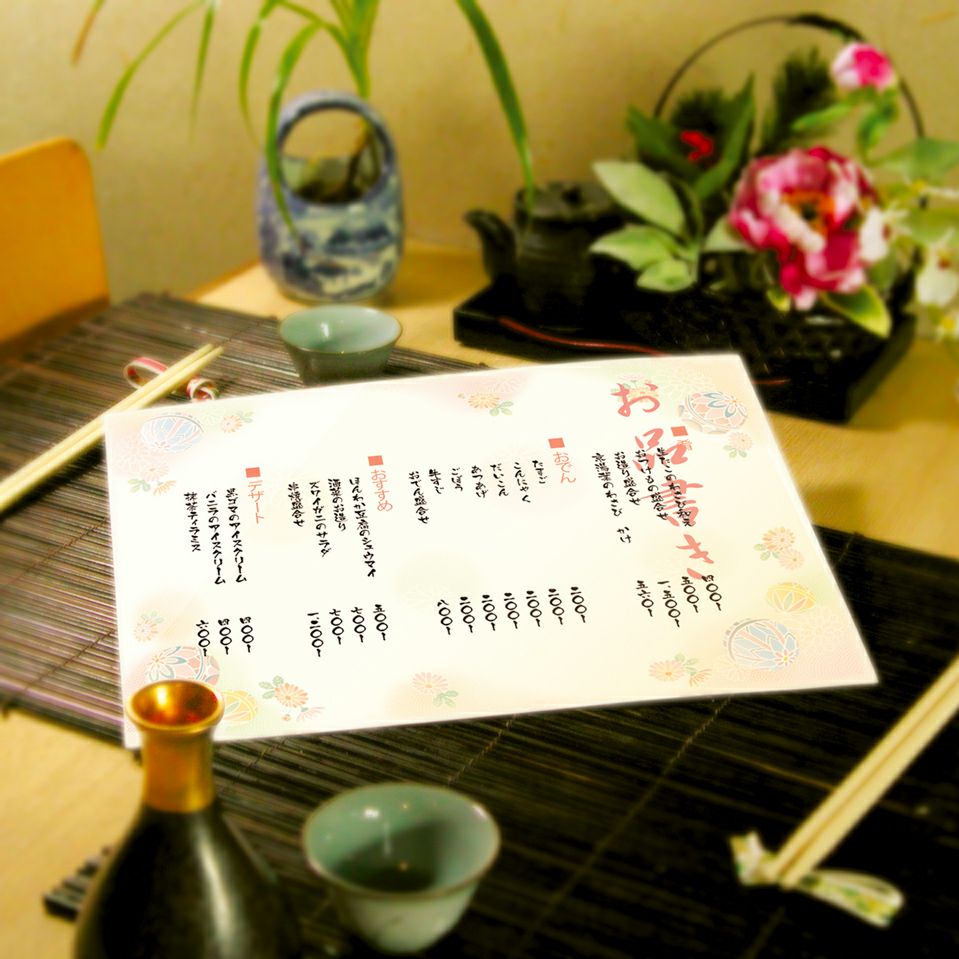 お品書き
■肴
生たこのわさび和え 四〇〇~
おつけもの盛合せ 五〇〇~
お造り盛合せ 一五〇〇~
京湯葉のわさび かけ 五六〇~
■おでん
たまご 二〇〇~
こんにゃく 二〇〇~
だいこん 二〇〇~
あつあげ 二〇〇~
ごぼう 二〇〇~
牛すじ 二〇〇~
おでん盛合せ 八〇〇~
■おすすめ
ほんわか豆腐のシュウマイ 五〇〇~
湯葉のお造り 七〇〇~
ズワイガニのサラダ 七〇〇~
串焼盛合せ 一二〇〇~
■デザート
黒ゴマのアイスクリーム 四〇〇~
バニラのアイスクリーム 四〇〇~
抹茶ティラミス 六〇〇~